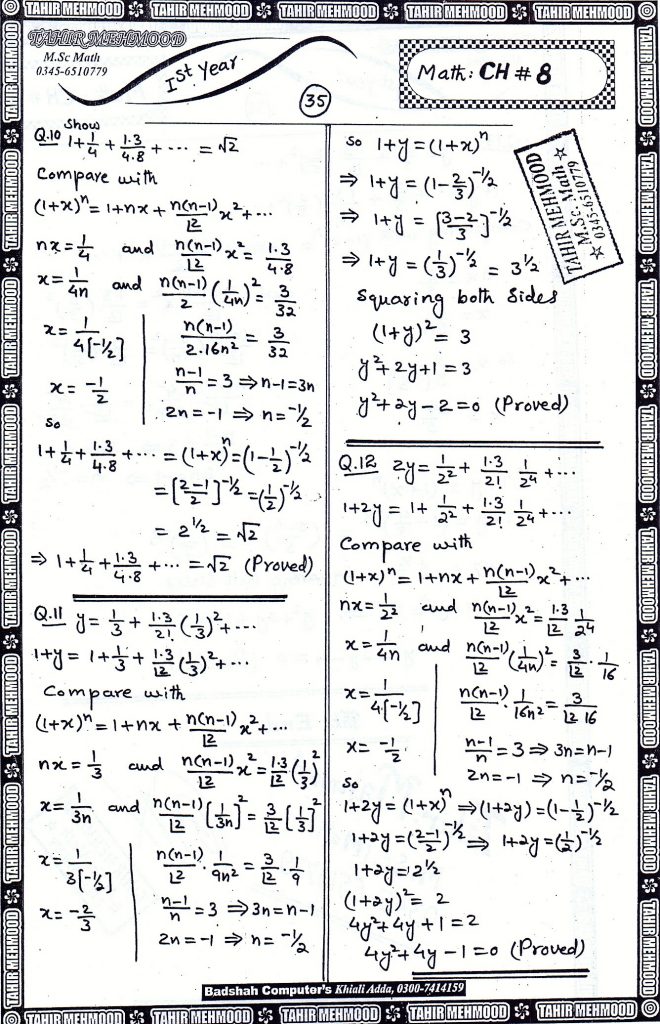 TAHIR MEHMOOD TAHIR MEHMOOD TAHIR MEHMOOD TAHIR MEHMOOD TAHIR MEHMOOD
TAHIR MEHMOOD
M.Sc Math
0345-6510779
Ist Year
35
Math: CH # 8
Q.10 Show 1+1/4 + 1·3/4·8 + ··· = √2
Compare with
(1+x)^n = 1+nx + n(n-1)/⌊2 x² + ···
nx = 1/4 and n(n-1)/⌊2 x² = 1·3/4·8
x = 1/4n and n(n-1)/2 (1/4n)² = 3/32
x = 1/4[-1/2] | n(n-1)/2·16n² = 3/32
x = -1/2 | n-1/n = 3 ⇒ n-1=3n
2n = -1 ⇒ n = -1/2
so
1+1/4 + 1·3/4·8 + ··· = (1+x)^n = (1-1/2)^-1/2
= [2-1/2]^-1/2 = (1/2)^-1/2
= 2^1/2 = √2
⇒ 1+1/4 + 1·3/4·8 + ··· = √2 (Proved)
Q.11 y = 1/3 + 1·3/2! (1/3)² + ···
1+y = 1+1/3 + 1·3/⌊2 (1/3)² + ···
Compare with
(1+x)^n = 1+nx + n(n-1)/⌊2 x² + ···
nx = 1/3 and n(n-1)/⌊2 x² = 1·3/⌊2 (1/3)²
x = 1/3n and n(n-1)/⌊2 [1/3n]² = 3/⌊2 [1/3]²
x = 1/3[-1/2] | n(n-1)/⌊2 · 1/9n² = 3/⌊2 · 1/9
x = -2/3 | n-1/n = 3 ⇒ 3n = n-1
2n = -1 ⇒ n = -1/2
so 1+y = (1+x)^n
⇒ 1+y = (1-2/3)^-1/2
⇒ 1+y = [3-2/3]^-1/2
⇒ 1+y = (1/3)^-1/2 = 3^1/2
Squaring both Sides
(1+y)² = 3
y²+2y+1 = 3
y²+2y-2=0 (Proved)
TAHIR MEHMOOD
M.Sc. Math
0345-6510779
Q.12 2y = 1/2² + 1·3/2! 1/2⁴ + ···
1+2y = 1+ 1/2² + 1·3/2! 1/2⁴ + ···
Compare with
(1+x)^n = 1+nx + n(n-1)/⌊2 x² + ···
nx = 1/2² and n(n-1)/⌊2 x² = 1·3/⌊2 1/2⁴
x = 1/4n and n(n-1)/⌊2 (1/4n)² = 3/⌊2 · 1/16
x = 1/4·[-1/2] | n(n-1)/⌊2 · 1/16n² = 3/⌊2 16
x = -1/2 | n-1/n = 3 ⇒ 3n=n-1
2n = -1 ⇒ n = -1/2
So
1+2y = (1+x)^n ⇒ (1+2y) = (1-1/2)^-1/2
1+2y = (2-1/2)^-1/2 ⇒ 1+2y = (1/2)^-1/2
1+2y = 2^1/2
(1+2y)² = 2
4y²+4y+1 = 2
4y²+4y-1=0 (Proved)
Badshah Computer's Khiali Adda, 0300-7414159
TAHIR MEHMOOD TAHIR MEHMOOD TAHIR MEHMOOD TAHIR MEHMOOD TAHIR MEHMOOD